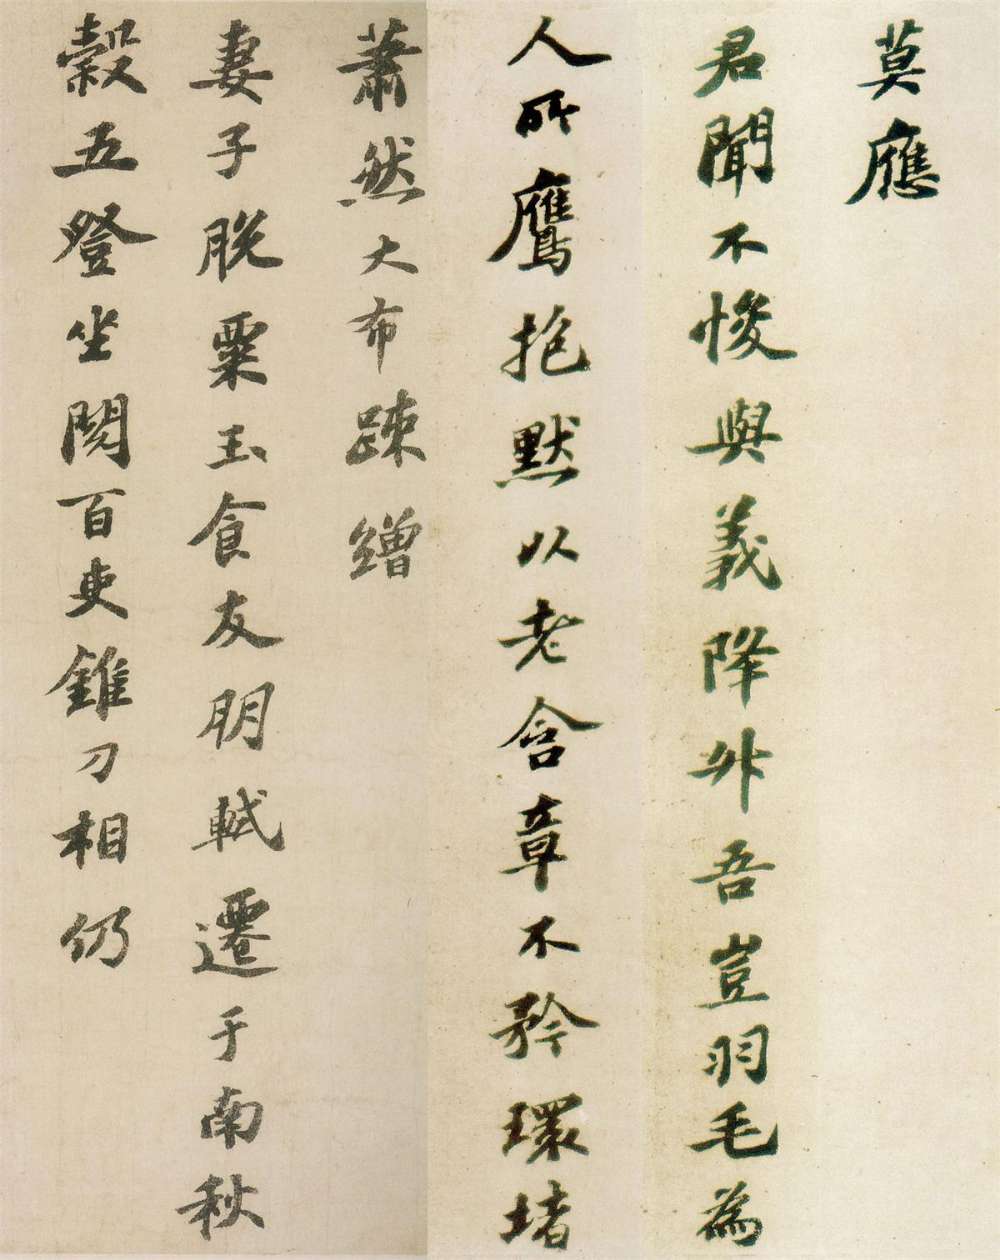 莫應
君聞不悛與義降升吾豈羽毛為
人所鷹抱默以老含章不矜環堵
蕭然大布疎繒
妻子脫粟玉食友朋軾遷于南秋
穀五登坐閱百吏錐刀相仍